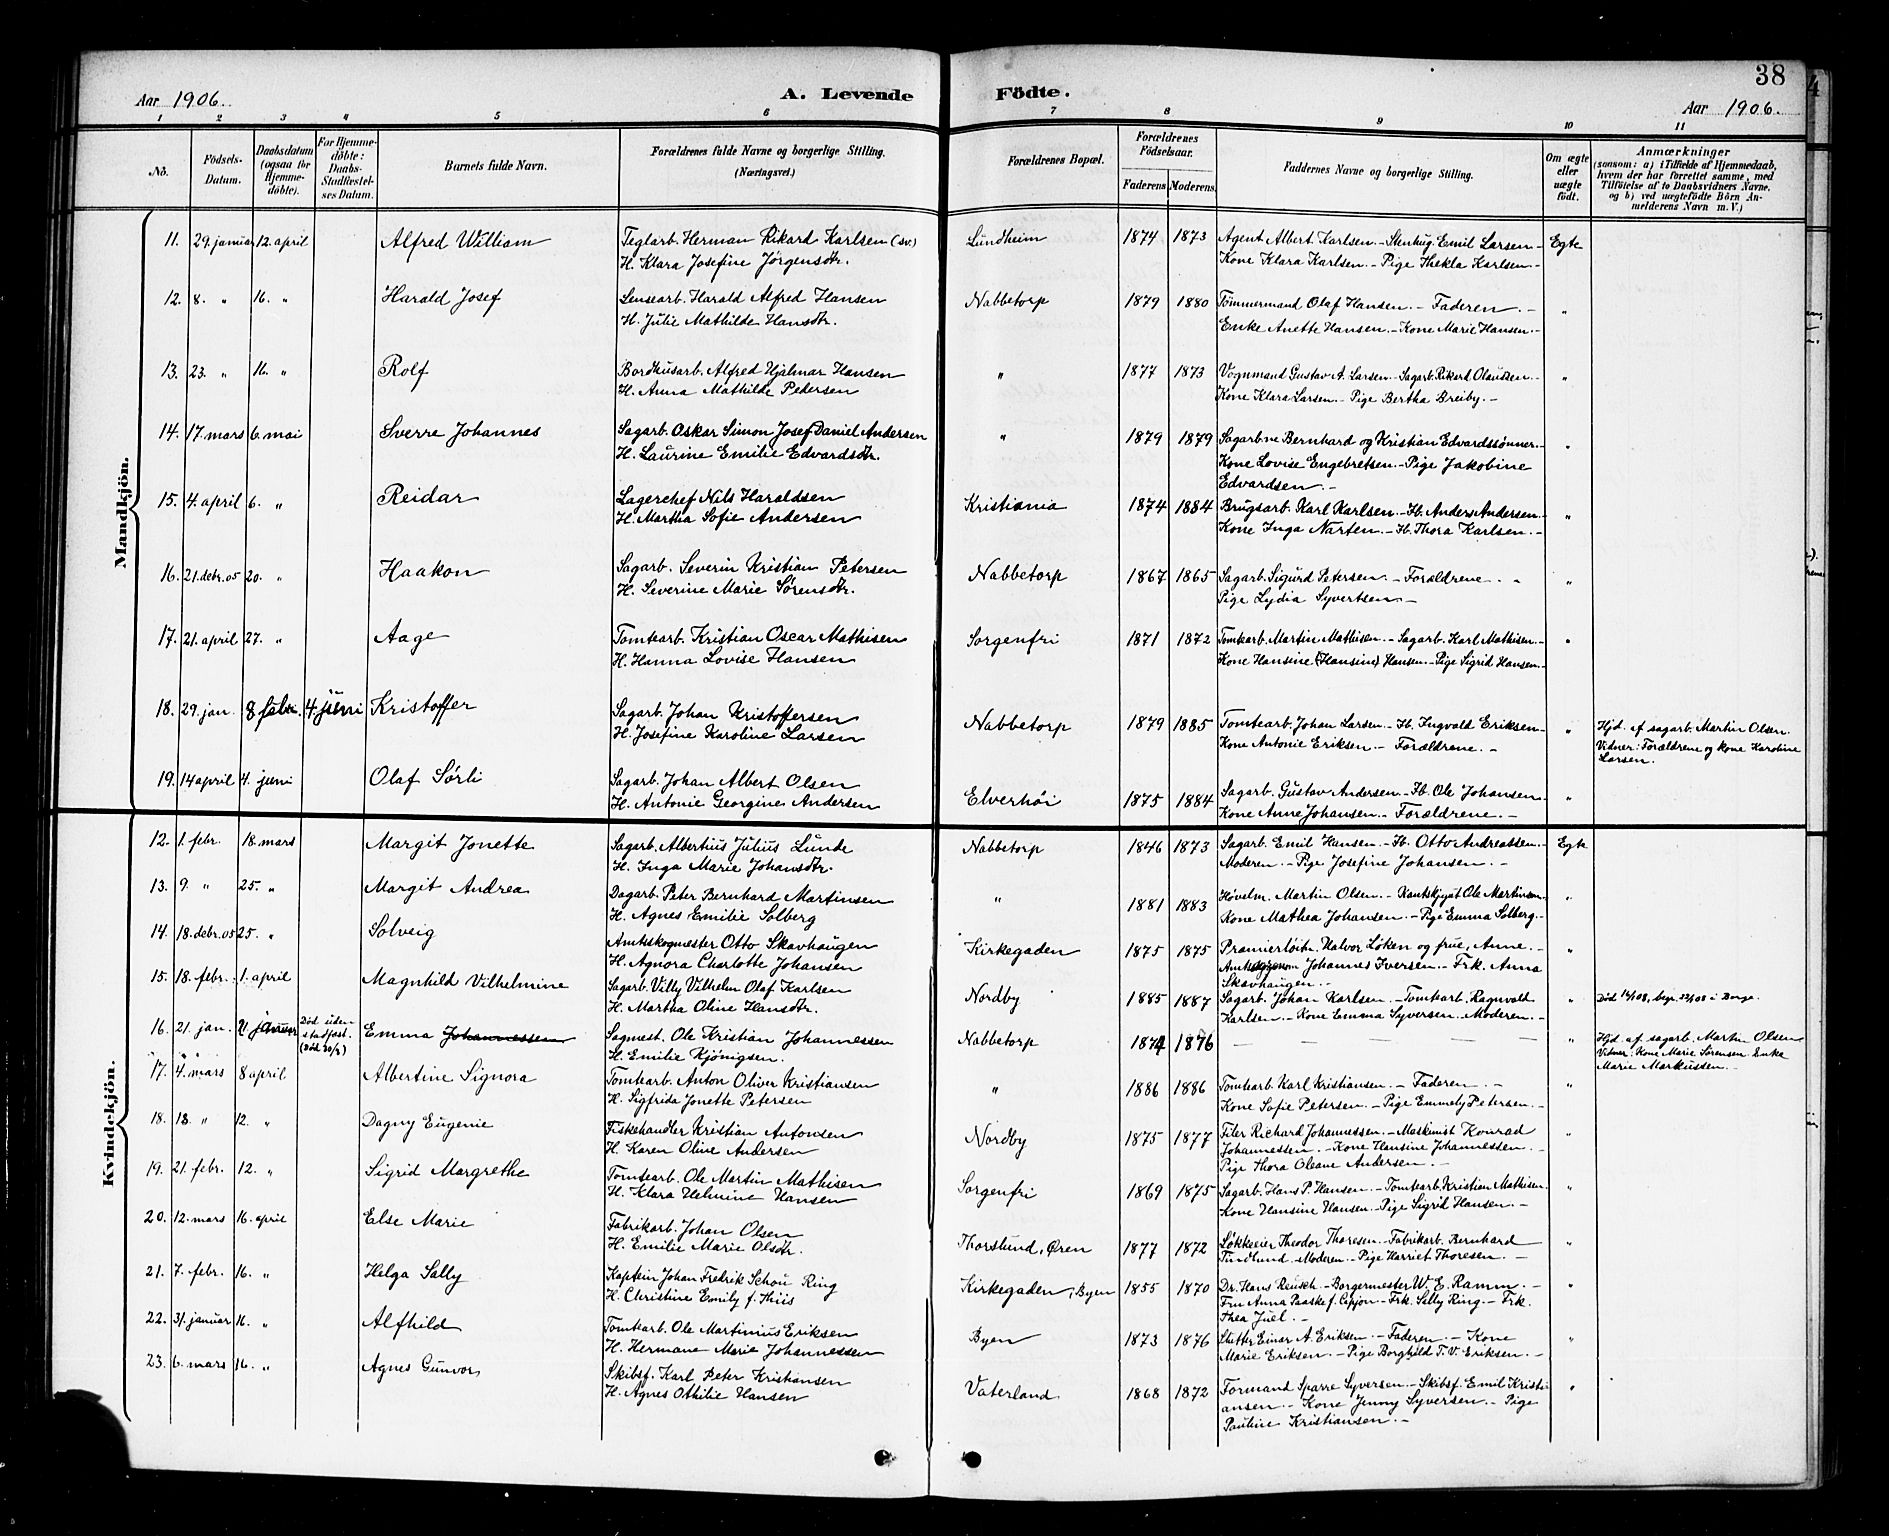 38
Aar 1906.
A. Levende Födte.
Aar 1906.
1 2 3 4 5 6 7 8 9 10 11
No.
Födsels-Datum.
Daabsdatum (ogsaa for Hjemmedöbte).
For Hjemmedöbte: Daabs-Stadfæstelses Datum.
Barnets fulde Navn.
Forældrenes fulde Navne og borgerlige Stilling. (Næringsvei.)
Forældrenes Bopæl.
Forældrenes Födselsaar.
Faderens Moderens.
Faddernes Navne og borgerlige Stilling.
Om ægte eller uægte födt.
Anmærkninger
(saasom: a) i Tilfælde af Hjemmedaab, hvem der har forrettet samme, med Tilföielse af to Daabsvidners Navne, og b) ved uægtefödte Börn Anmelderens Navn m. V.)
Mandkjön.
11. 29. januar 12. april Alfred William Teglarb. Herman Rikard Karlsen (sv.) Lundheim 1874 1873 Agent Albert Karlsen.- Stenhug. Emil Larsen.- Egte
H. Klara Josefine Jörgensdtr. Kone Klara Karlsen.- Pige Thekla Karlsen.-
12. 8. " 16. " Harald Josef Lensearb. Harald Alfred Hansen Nabbetorp 1879 1880 Tömmermand Olaf Hansen.- Faderen.- "
H. Julie Mathilde Hansdtr. Enke Anette Hansen.- Kone Marie Hansen.-
13. 23. " 16. " Rolf Bordhusarb. Alfred Hjalmar Hansen " 1877 1873 Vognmand Gustav A. Larsen.- Sagarb. Rikard Olausen.- "
H. Anna Mathilde Petersen Kone Klara Larsen.- Pige Bertha Breiby.-
14. 17. mars 6. mai Sverre Johannes Sagarb. Oskar Simon Josef Daniel Andersen " 1879 1879 Sagarb.ne Bernhard og Kristian Edvardssönner.- "
H. Laurine Emilie Edvardsdtr. Kone Lovise Engebretsen.- Pige Jakobine
Edvardsen.-
15. 4. april 6. " Reidar Lagerchef Nils Haraldsen Kristiania 1874 1884 Brugsarb. Karl Karlsen.- Fb. Anders Andersen.- "
H. Martha Sofie Andersen Kone Inga Narten.- Fb. Thora Karlsen.-
16. 21. debr. 05 20. " Haakon Sagarb. Severin Kristian Petersen Nabbetorp 1867 1865 Sagarb. Sigurd Petersen.- Forældrene.- "
H. Severine Marie Sörensdtr. Pige Lydia Syvertsen.-
17. 21. april 27. " Aage Tomtearb. Kristian Oscar Mathisen Sorgenfri 1871 1872 Tomtearb. Martin Mathisen.- Sagarb. Karl Mathisen.- "
H. Hanna Lovise Hansen Kone Hansine (Hansine) Hansen.- Pige Sigrid Hansen.-
18. 29. jan. 8 febr. 4. juni Kristoffer Sagarb. Johan Kristoffersen Nabbetorp 1879 1885 Tomtearb. Johan Larsen.- Fb. Ingvald Eriksen.- " Hjd. af sagarb. Martin Olsen.
H. Josefine Karoline Larsen Kone Antonie Eriksen.- Forældrene.- Vidner: Forældrene og kone Karoline
Larsen.
19. 14 april 4. juni Olaf Sörli Sagarb. Johan Albert Olsen Elverhöi 1875 1884 Sagarb. Gustav Andersen.- Fb. Ole Johansen.- "
H. Antonie Georgine Andersen Kone Anne Johansen.- Forældrene.-
Kvindekjön.
12. 1. febr. 18. mars Margit Jonette Sagarb. Albertius Julius Lunde Nabbetorp 1846 1873 Sagarb. Emil Hansen.- Fb. Otto Andreassen.- Egte
H. Inga Marie Johansdtr. Moderen.- Pige Josefine Johansen.-
13. 9. " 25. " Margit Andrea Dagarb. Peter Bernhard Martinsen " 1881 1883 Hövelm. Martin Olsen.- Kantskjyut Ole Martinsen.- "
H. Agnes Emilie Solberg Kone Mathea Johansen.- Pige Emma Solberg.-
14. 18. debr. 05 25. " Solveig Amtsskogmester Otto Skavhaugen Kirkegaden 1875 1875 Præmierlöitn. Halvor Löken og frue, Anne.- "
H. Agnora Charlotte Johansen Johannes Iversen.- Frk. Anna
Skavhaugen.-
15. 18. febr. 1. april Magnhild Vilhelmine Sagarb. Villy Vilhelm Olaf Karlsen Nordby 1885 1887 Sagarb. Johan Karlsen.- Tomtearb. Ragnvald " Död 16/1 08, begr. 22/1 08 i Borge.
H. Martha Oline Hansdtr. Karlsen.- Kone Emma Syversen. Moderen.-
16. 21. jan. 21 januar Död uden stadfæst. (Död 20/2) Emma Johannessen Sagmest. Ole Kristian Johannessen Nabbetorp 1874 1876 — — — — — " Hjd. af sagarb. Martin Olsen
H. Emilie Kjönigsen. Vidner: Kone Marie Sörensen. Enke
Marie Markussen.-
17. 4. mars 8 april Albertine Signora Tomtearb. Anton Oliver Kristiansen " 1886 1886 Tomtearb. Karl Kristiansen.- Faderen.- "
H. Sigfrida Jonette Petersen Kone Sofie Petersen.- Pige Emmely Petersen.-
18. 13. " 12. " Dagny Eugenie Fiskehandler Kristian Antonsen Nordby 1875 1877 Filer Richard Johannessen.- Maskinist Konrad "
H. Karen Oline Andersen Johannessen.- Kone Hansine Johannessen.-
Pige Thora Oleane Andersen.-
19. 21. febr. 12. " Sigrid Margrethe Tomtearb. Ole Martin Mathisen Sorgenfri 1869 1875 Sagarb. Hans P. Hansen.- Tomtearb. Kristian Mathisen. "
H. Klara Helmine Hansen Kone Hansine Hansen.- Pige Sigrid Hansen.-
20. 12. mars 16. april Else Marie Fabrikarb. Johan Olsen Thorslund, Øren 1877 1872 Lökkeeier Theodor Thoresen.- Fabrikarb. Bernhard "
H. Emilie Marie Olsdtr. Tindlund. Moderen.- Pige Harriet Thoresen.-
21. 7. febr. 16. " Helga Sally Kaptein Johan Fredrik Schou Ring Kirkegaden, Byen 1855 1870 Dr. Hans Reusch.- Borgermester W. E. Ramm.- "
H. Christine Emily f. Thiis Fru Anna Paaske f. - Frk. Silly Ring.- Frk.
Thea Juel.-
22. 31. januar 16. " Alfhild Tomtearb. Ole Martinius Eriksen Byen 1873 1876 Einar A. Eriksen.- Faderen.- Kone "
H. Hermane Marie Johannessen Marie Eriksen.- Pige Borghild T. V. Eriksen.-
23. 6. mars 16. " Agnes Gunvor Skibsf. Karl Peter Kristiansen Vaterland 1868 1872 Formand Sparre Syversen.- Skibsf. Emil Kristi- "
H. Agnes Othilie Hansen ansen.- Kone Jenny Syversen.- Pige
Pauline Kristiansen.-